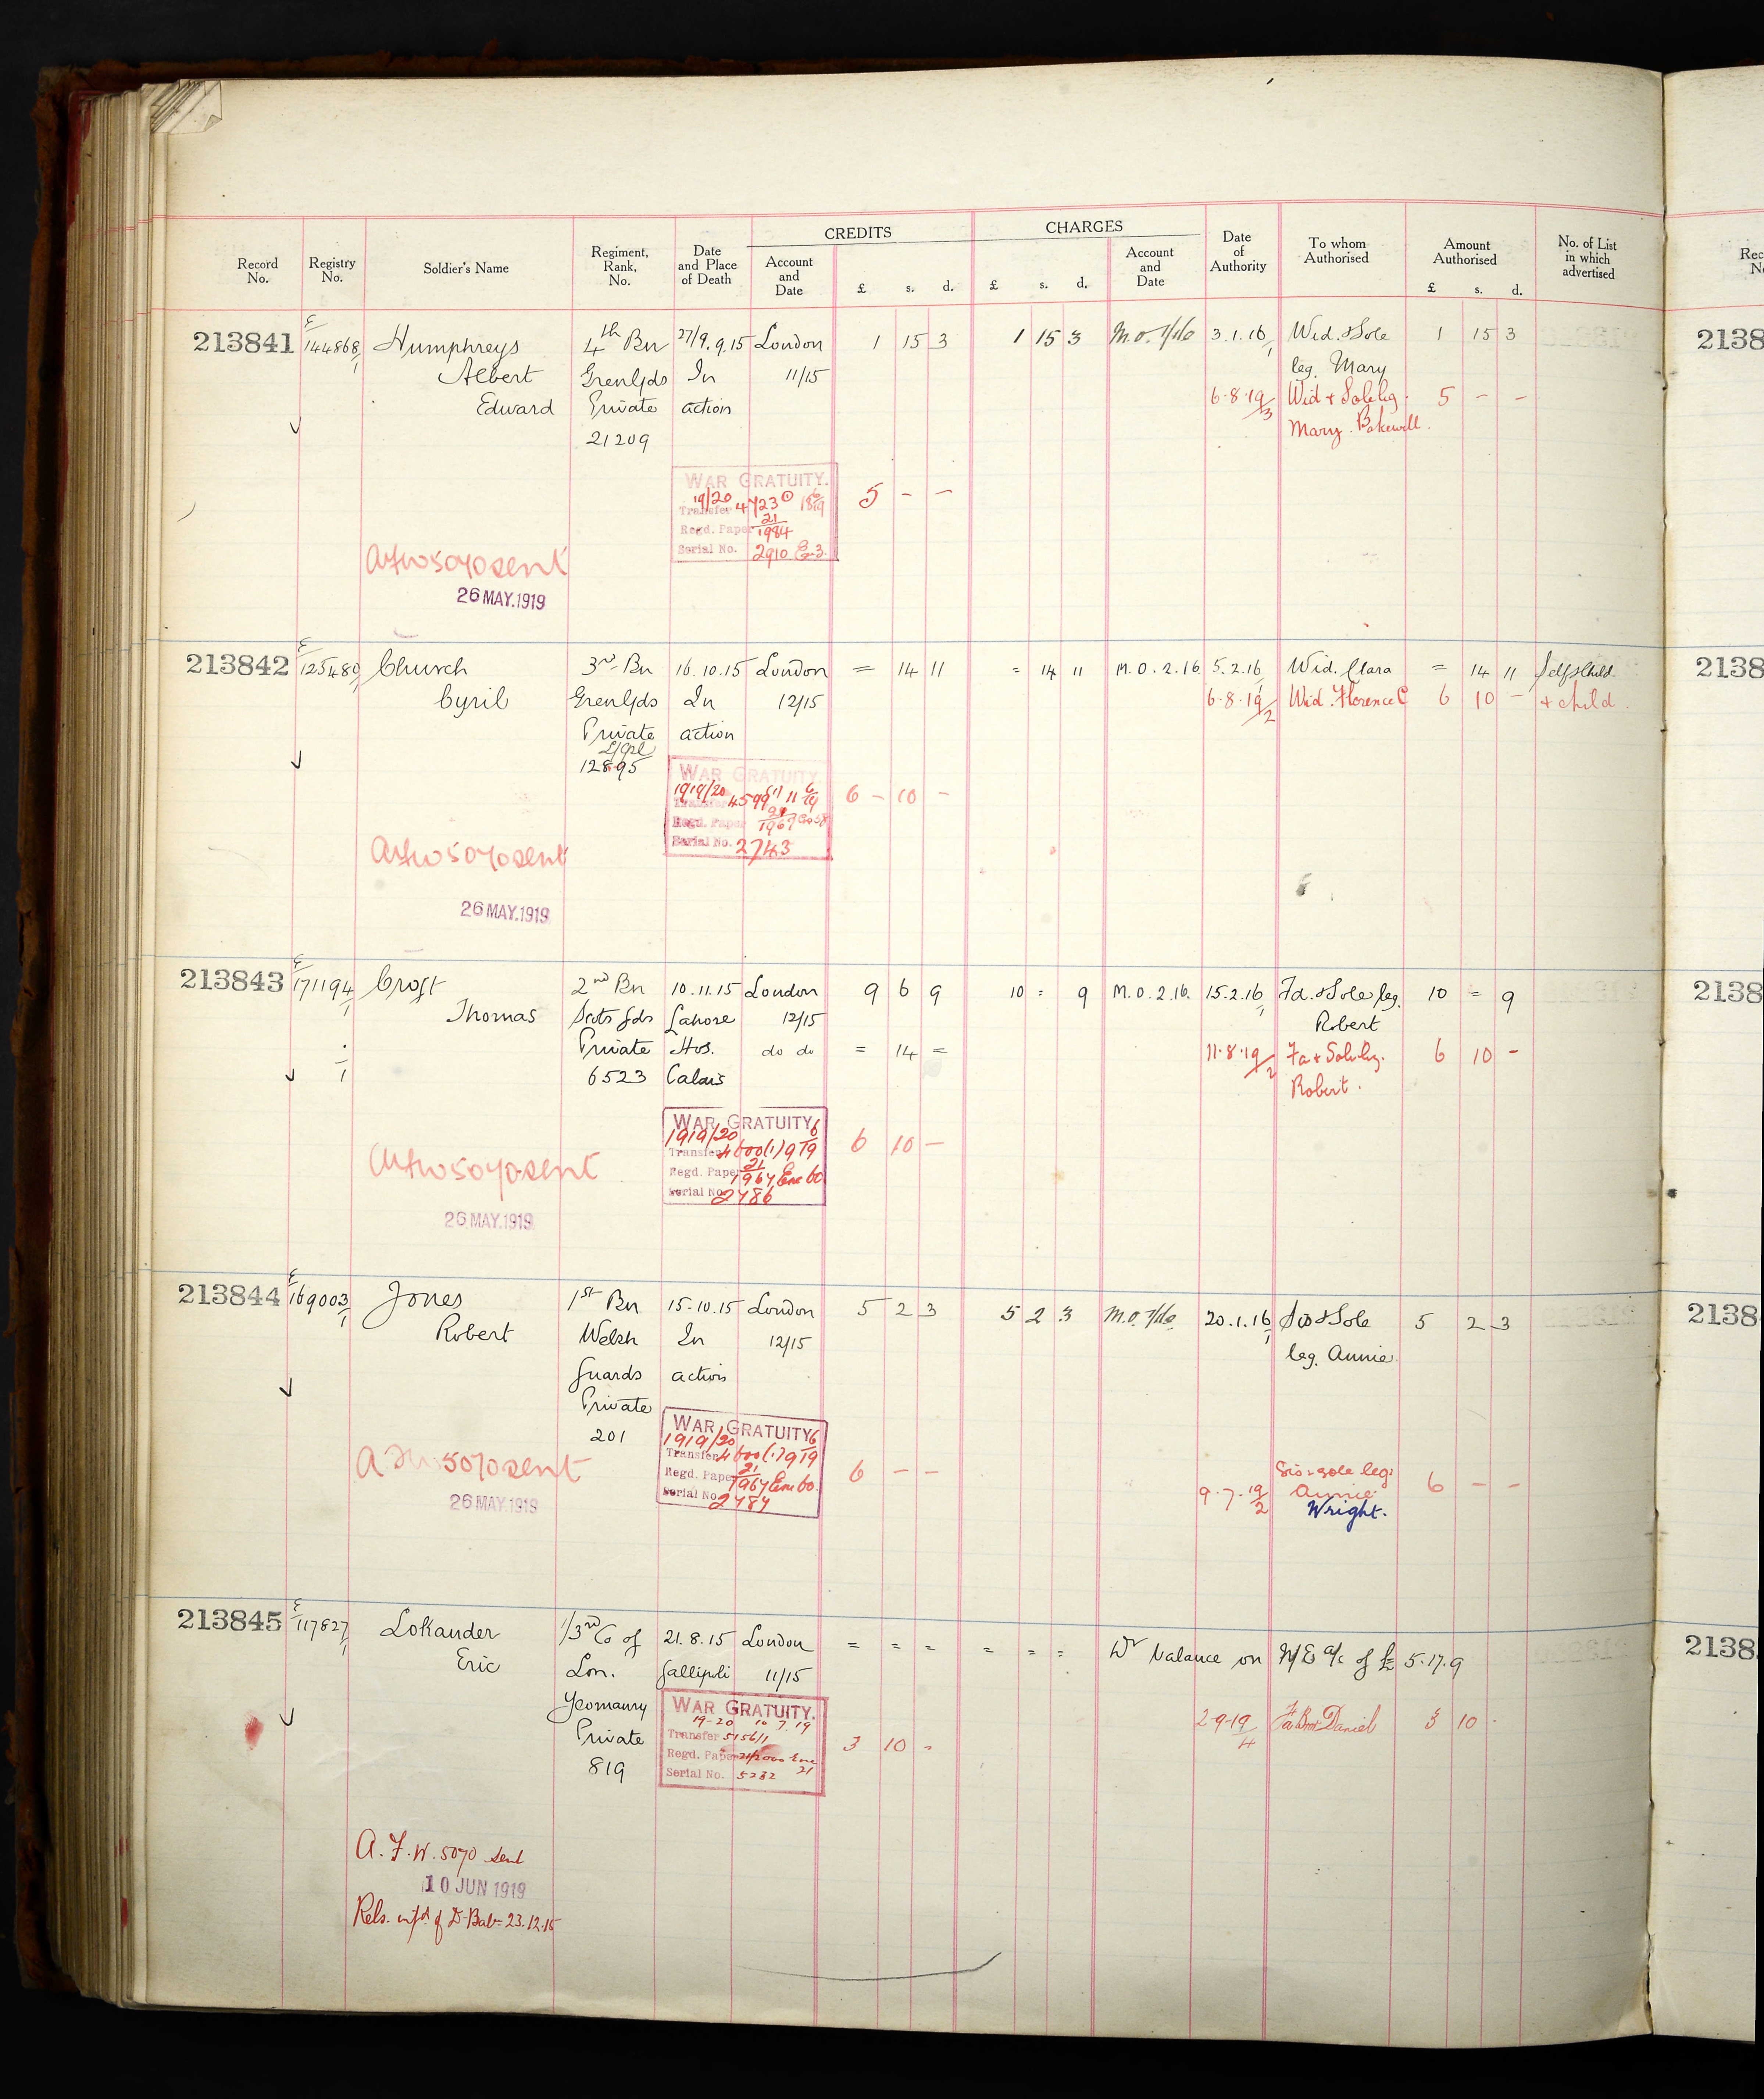 CREDITS CHARGES
Record No. Registry No. Soldier's Name Regiment, Rank, No. Date and Place of Death Account and Date £ s. d. £ s. d. Account and Date Date of Authority To whom Authorised Amount Authorised £ s. d. No. of List in which advertised
213841 E/144868/1 Humphreys 4th Bn 27/9.9.15 London 1 15 3 1 15 3 M.O. 1/16 3.1.16/1 Wid. & Sole 1 15 3
Albert Gren Gds In 11/15 leg. Mary
Edward Private action 6.8.19/3 Wid + Sole leg. 5 - -
21209 Mary Bakewell.
WAR GRATUITY. 5 - -
19/20
Transfer 4723
Regd. Paper 21/1984
Serial No. 2910 E 3
AFW 5070 sent
26 MAY.1919
213842 E/125480/1 Church 3rd Bn 16.10.15 London = 14 11 = 14 11 M.O. 2.16 5.2.16/1 Wid. Clara = 14 11 Self & Child.
Cyril Gren Gds In 12/15 6.8.19/2 Wid. Florence C 6 10 - + child.
Private action
L/Cpl
12895
WAR GRATUITY 6 - 10 -
1919/20
Transfer 4599
Regd. Paper 21/1967
Serial No. 2743
AFW 5070 sent
26 MAY.1919
213843 E/171194/1 Croft 2nd Bn 10.11.15 London 9 6 9 10 = 9 M.O. 2.16. 15.2.16/1 Fa. & Sole leg. 10 = 9
Thomas Scots Gds Lahore 12/15 Robert
Private Hos. do do = 14 = 11.8.19/2 Fa + Sole leg. 6 10 -
6523 Calais Robert.
WAR GRATUITY 6 10 -
1919/20
Transfer 4600(1) 9 6/19
Regd. Paper 21/1967 Enc 60
Serial No. 2786
AFW 5070 sent
26 MAY.1919
213844 E/169003/1 Jones 1st Bn 15.10.15 London 5 2 3 5 2 3 M.O. 1/16 20.1.16/1 Sis & Sole 5 2 3
Robert Welsh In 12/15 leg. Annie
Guards action
Private
201
WAR GRATUITY 6 - -
1919/20
Transfer 4600(1) 9 6/19
Regd. Paper 21/1967 Enc 60.
Serial No. 2787
Sis + sole leg: 6 - -
9.7.19/2 Annie
Wright.
AFW 5070 sent
26 MAY.1919
213845 E/117827/1 Lokander 1/3rd Co of 21.8.15 London = = = = = = Dr balance on N/E a/c of £ 5.17.9
Eric Lon. Gallipoli 11/15
Yeomanry
Private
819
WAR GRATUITY. 3 10 - 2.9.19/4 Fa Daniel 3 10 -
19-20 10 7.19
Transfer 5156/1
Regd. Paper 21/2000 Enc 21
Serial No. 5232
A.F.W. 5070 sent
10 JUN 1919
Rels. infd. of Dr Bal= 23.12.15
2138
2138
2138
2138
2138